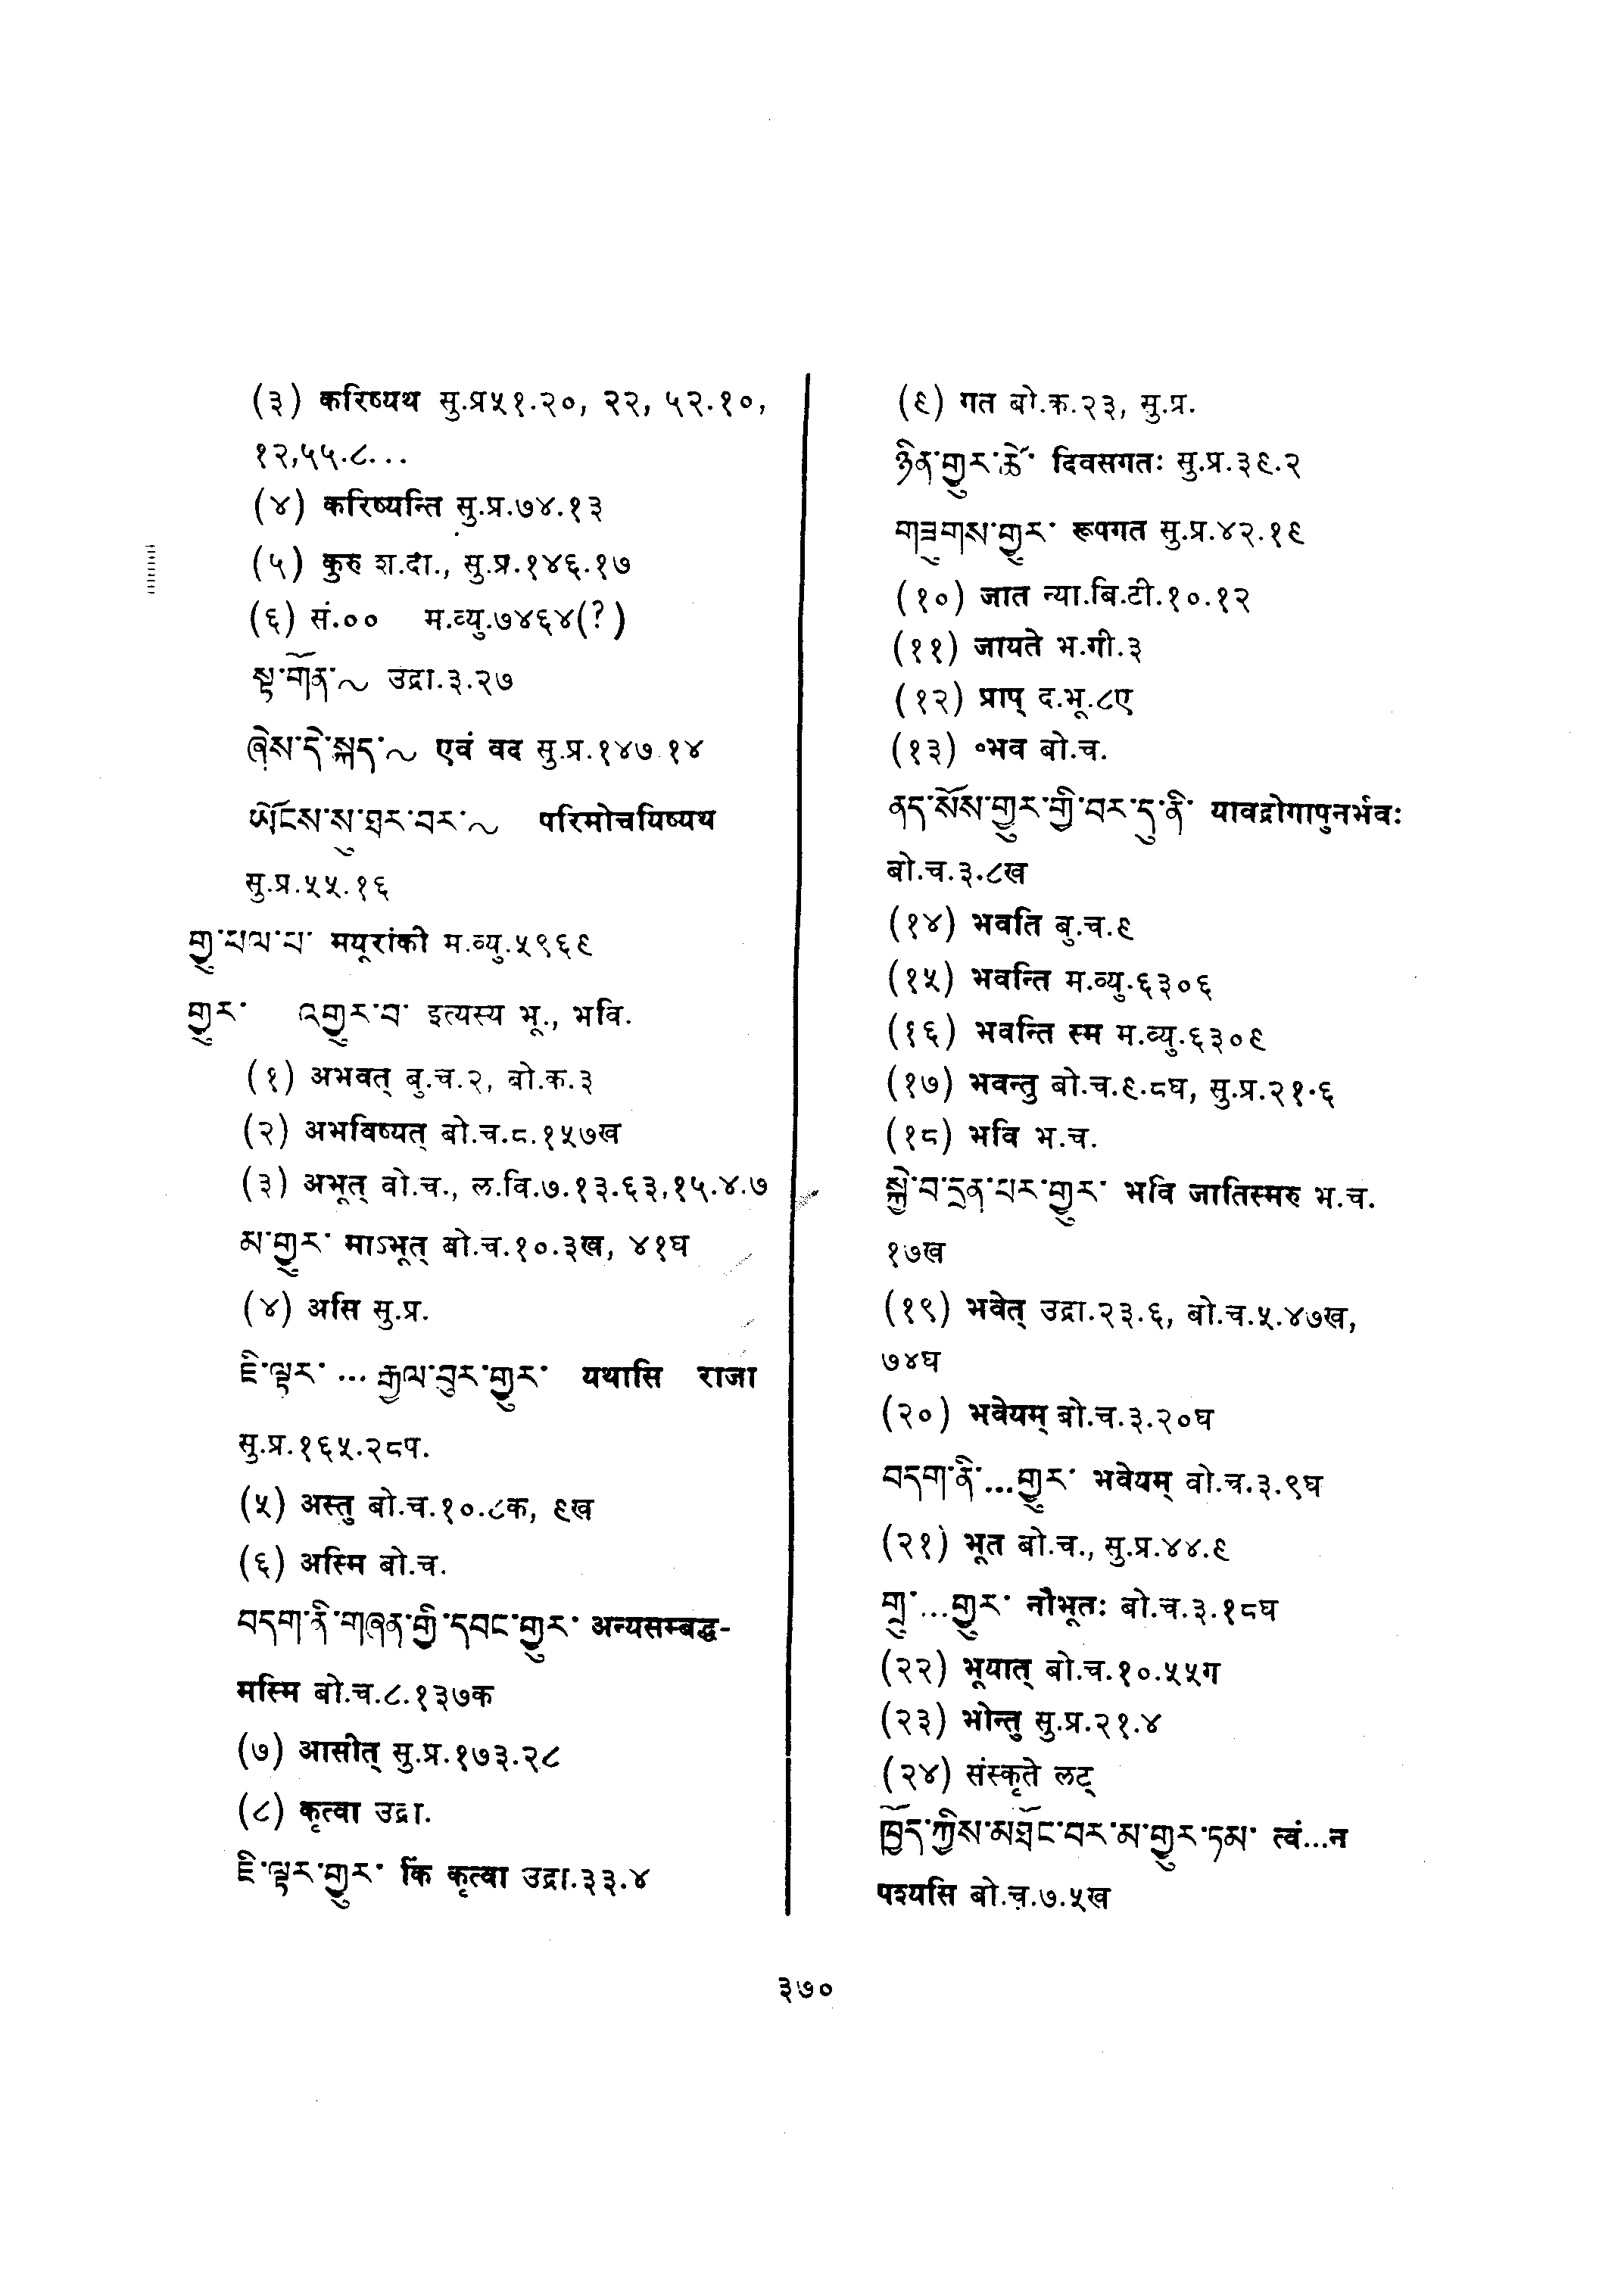 (३) करिष्यथ सु.प्र५१.२०, २२, ५२.१०,
१२,५५.८...
(४) करिष्यन्ति सु.प्र.७४.१३
(५) कुरु श.दा., सु.प्र.१४६.१७
(६) सं.०० म.व्यु.७४६४(?)
སྟ་གོན་~ उद्रा.३.२७
ཞེས་དེ་སྐད་~ एवं वद सु.प्र.१४७.१४
ཡོངས་སུ་ཐར་བར་~ परिमोचयिष्यथ
सु.प्र.५५.१६
གྱུ་པལ་པ་ मयूरांकी म.व्यु.५९६९
གྱུར་ འགྱུར་བ་ इत्यस्य भू., भवि.
(१) अभवत् बु.च.२, बो.क.३
(२) अभविष्यत् बो.च.८.१५७ख
(३) अभूत् बो.च., ल.वि.७.१३.६३,१५.४.७
མ་གྱུར་ माऽभूत् बो.च.१०.३ख, ४१घ
(४) असि सु.प्र.
ཇི་ལྟར་ ... རྒྱལ་བུར་གྱུར་ यथासि राजा
सु.प्र.१६५.२८प.
(५) अस्तु बो.च.१०.८क, ९ख
(६) अस्मि बो.च.
བདག་ནི་གཞན་གྱི་དབང་གྱུར་ अन्यसम्बद्ध-
मस्मि बो.च.८.१३७क
(७) आसीत् सु.प्र.१७३.२८
(८) कृत्वा उद्रा.
ཇི་ལྟར་གྱུར་ किं कृत्वा उद्रा.३३.४
(९) गत बो.क.२३, सु.प्र.
ཉིན་གྱུར་ཚེ་ दिवसगतः सु.प्र.३९.२
གཟུགས་གྱུར་ रूपगत सु.प्र.४२.१९
(१०) जात न्या.बि.टी.१०.१२
(११) जायते भ.गी.३
(१२) प्राप् द.भू.८ए
(१३) ०भव बो.च.
ནད་སོས་གྱུར་གྱི་བར་དུ་ནི་ यावद्रोगापुनर्भवः
बो.च.३.८ख
(१४) भवति बु.च.९
(१५) भवन्ति म.व्यु.६३०६
(१६) भवन्ति स्म म.व्यु.६३०९
(१७) भवन्तु बो.च.९.८घ, सु.प्र.२१.६
(१८) भवि भ.च.
སྐྱེ་བ་དྲན་པར་གྱུར་ भवि जातिस्मरु भ.च.
१७ख
(१९) भवेत् उद्रा.२३.६, बो.च.५.४७ख,
७४घ
(२०) भवेयम् बो.च.३.२०घ
བདག་ནི་...གྱུར་ भवेयम् बो.च.३.९घ
(२१) भूत बो.च., सु.प्र.४४.९
གྲུ་...གྱུར་ नौभूतः बो.च.३.१८घ
(२२) भूयात् बो.च.१०.५५ग
(२३) भोन्तु सु.प्र.२१.४
(२४) संस्कृते लट्
ཁྱོད་ཀྱིས་མཐོང་བར་མ་གྱུར་ཏམ་ त्वं...न
पश्यसि बो.च.७.५ख
३७०